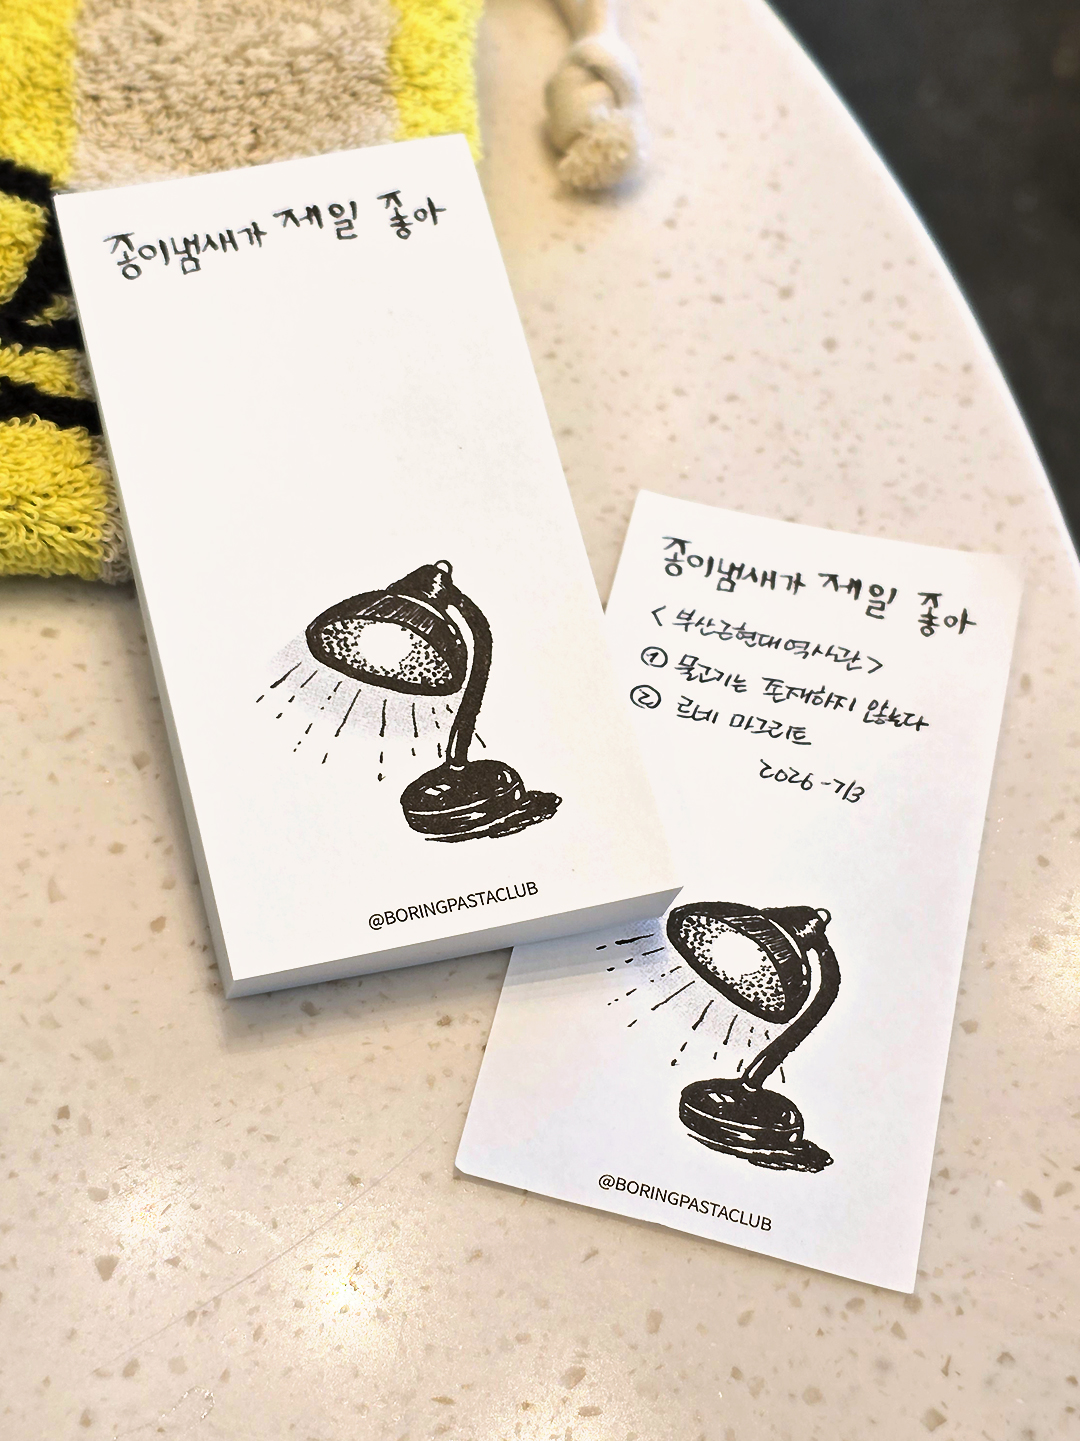 종이냄새가 제일 좋아
@BORINGPASTACLUB
종이냄새가 제일 좋아
<부산근현대역사관>
① 물고기는 존재하지 않는다
② 르네 마그리트
2026-7/3
@BORINGPASTACLUB